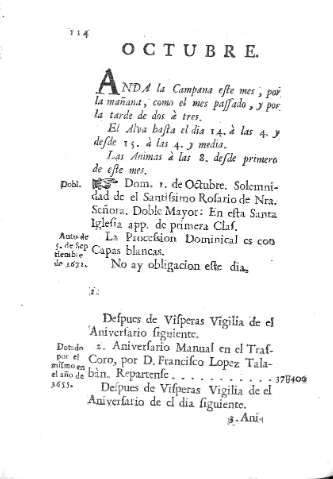 114
OCTUBRE.
ANDA la Campana eſte mes, por
la mañana, como el mes paſſado, y por
la tarde de dos à tres.
El Alva haſta el dia 14. à las 4. y
deſde 15. à las 4. y media.
Las Animas à las 8. deſde primero
de eſte mes.
Dobl. Dom. 1. de Octubre. Solemni-
dad de el Santiſſimo Roſario de Nra.
Señora. Doble Mayor: En eſta Santa
Igleſia app. de primera Claſ.
Auto de
5. de Sep
tiembre
de 1672.
La Proceſſion Dominical es con
Capas blancas.
No ay obligacion eſte dia.
Deſpues de Viſperas Vigilia de el
Aniverſario ſiguiente.
Dotado
por el
miſmo en
el año de
1655.
2. Aniverſario Manual en el Traſ-
Coro, por D. Franciſco Lopez Tala-
bàn. Repartenſe . . . . . . . . . . . 37U400
Deſpues de Viſperas Vigilia de el
Aniverſario de el dia ſiguiente.
3. Ani-